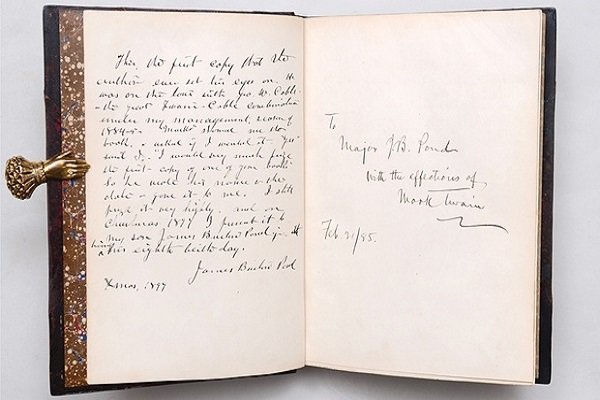 This the first copy that the
author ever set his eyes on. He
was on the tour with Geo. W. Cable
the great Twain-Cable combination
under my management, season of
1884-5. "Mark" showed me the
book, & asked if I wanted it. "Yes"
said I, "I would very much prize
the first copy of one of your books"
So he wrote his name & the
date & gave it to me. I still
prize it very highly, and on
Christmas 1897 I present it to
my son James Burton Pond jr. it
being his eighth birth day.
James Burton Pond
Xmas, 1897
To
Major J.B. Pond
with the affections of
Mark Twain
Feb. 21/85.